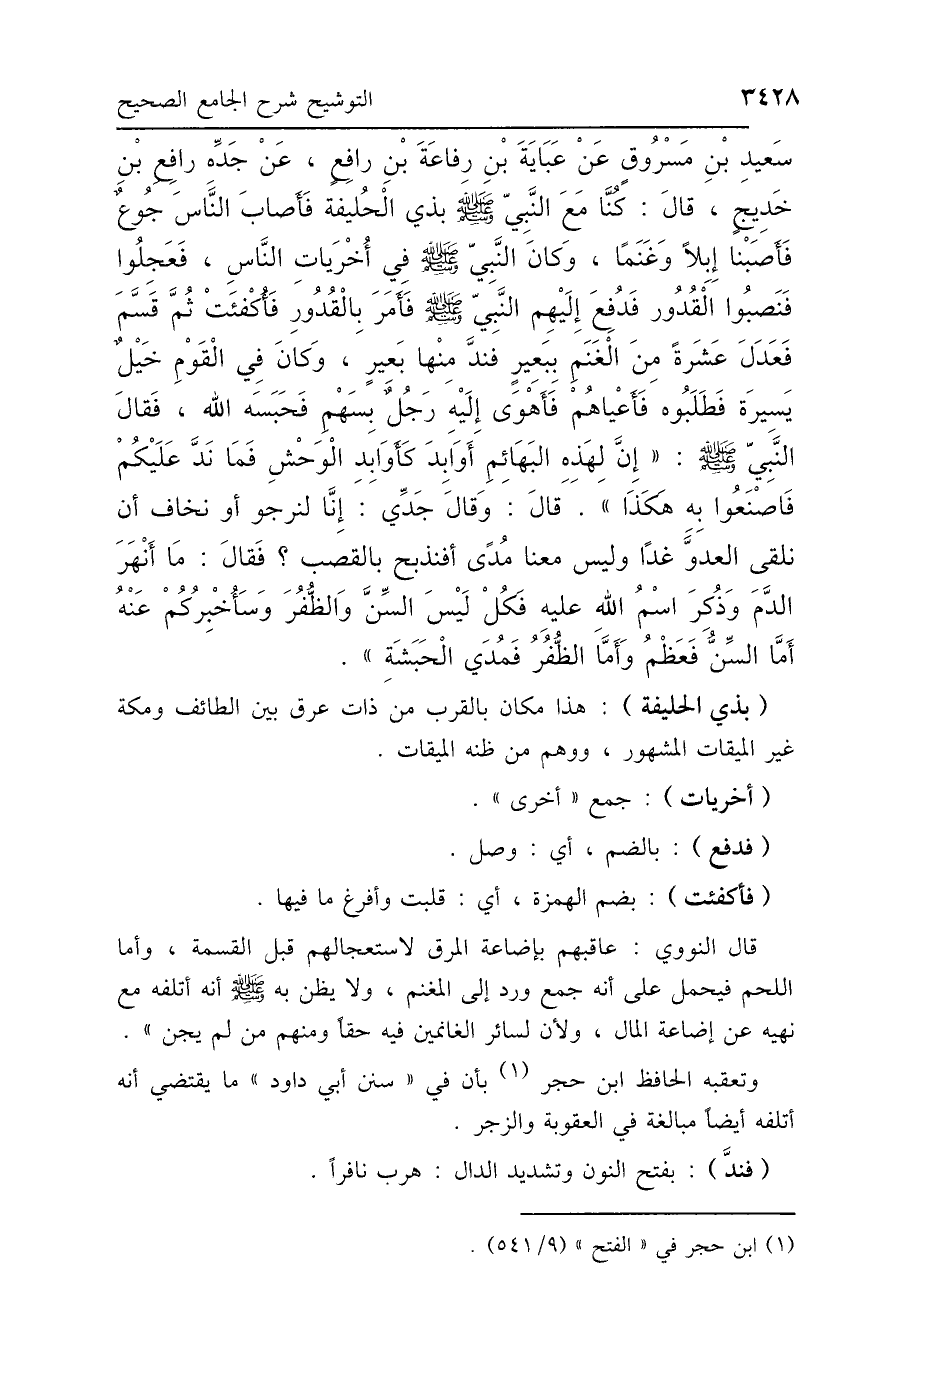 ٣٤٢٨ التوشيح شرح الجامع الصحيح
سَعيدِ بْنِ مَسْرُوقٍ عَنْ عَبَايَةَ بْنِ رِفاعَةَ بْنِ رافِعٍ ، عَنْ جَدِّه رافِعِ بْنِ
خَدِيجٍ ، قالَ : كُنَّا مَعَ النَّبِيّ ﷺ بذي الْحُليفة فَأَصابَ النَّاسَ جُوعٌ
فَأَصَبْنا إِبِلاً وَغَنَمًا ، وَكَانَ النَّبِيّ ﷺ فِي أُخْرَيَاتِ النَّاسِ ، فَعَجِلُوا
فَنَصبُوا الْقُدُور فَدُفِعَ إِلَيْهِم النَّبِيّ ﷺ فَأَمَرَ بِالْقُدُورِ فَأُكْفِئَتْ ثُمَّ قَسَّمَ
فَعَدَلَ عَشَرَةً مِنَ الْغَنَمِ بِبَعيرٍ فندَّ مِنْها بَعِيرٍ ، وَكَانَ فِي الْقَوْمِ خَيْلٌ
يَسِيرَة فَطَلَبُوه فَأَعْياهُمْ فَأَهْوَى إِلَيْهِ رَجُلٌ بِسَهْمٍ فَحَبَسَه الله ، فَقالَ
النَّبِيّ ﷺ : « إِنَّ لِهَذِهِ البَهائِمِ أَوَابِدَ كَأَوَابِدِ الْوَحْشِ فَمَا نَدَّ عَلَيْكُمْ
فَاصْنَعُوا بِهِ هَكَذَا » . قالَ : وَقالَ جَدِّي : إِنَّا لنرجو أو نخاف أن
نلقى العدوَّ غدًا وليس معنا مُدًى أفنذبح بالقصب ؟ فَقالَ : مَا أَنْهَرَ
الدَّمَ وَذُكِرَ اسْمُ اللهِ عليهِ فَكُلْ لَيْسَ السِّنَّ وَالظُّفُرَ وَسَأُخْبِرُكُمْ عَنْهُ
أَمَّا السِّنُّ فَعَظْمٌ وأَمَّا الظُّفُرُ فَمُدَي الْحَبَشَةِ » .
( بذي الحليفة ) : هذا مكان بالقرب من ذات عرق بين الطائف ومكة
غير الميقات المشهور ، ووهم من ظنه الميقات .
( أخريات ) : جمع « أخرى » .
( فدفع ) : بالضم ، أي : وصل .
( فأكفئت ) : بضم الهمزة ، أي : قلبت وأفرغ ما فيها .
قال النووي : عاقبهم بإضاعة المرق لاستعجالهم قبل القسمة ، وأما
اللحم فيحمل على أنه جمع ورد إلى المغنم ، ولا يظن به ﷺ أنه أتلفه مع
نهيه عن إضاعة المال ، ولأن لسائر الغانمين فيه حقاً ومنهم من لم يجن » .
وتعقبه الحافظ ابن حجر (١) بأن في « سنن أبي داود » ما يقتضي أنه
أتلفه أيضاً مبالغة في العقوبة والزجر .
( فندَّ ) : بفتح النون وتشديد الدال : هرب نافراً .
(١) ابن حجر في « الفتح » (٩/ ٥٤١) .